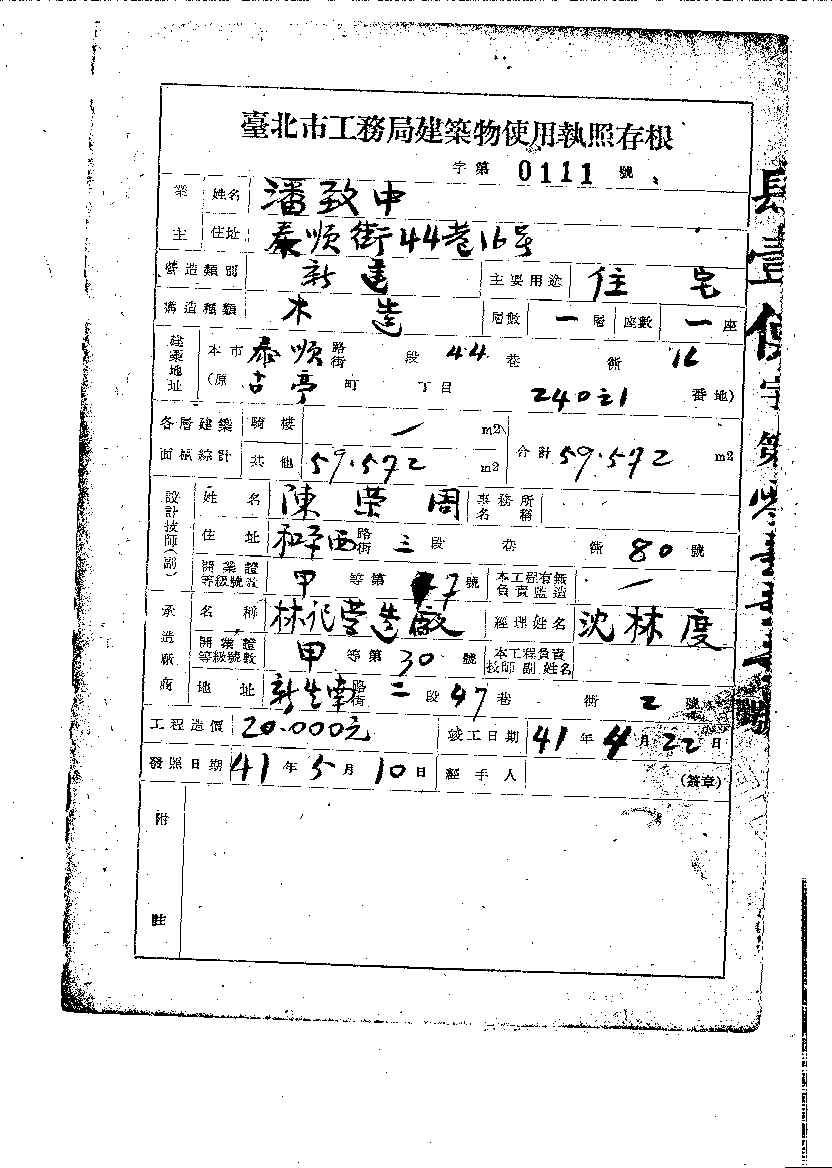 臺北市工務局建築物使用執照存根
字第 0111 號
業主 姓名 潘致中
住址 泰順街44巷16号
營造類別 新建 主要用途 住宅
構造種類 木造 層數 一層 座數 一座
建築地址 本市 泰順 路街 段 44 巷 衖 16
(原 古亭 町 丁目 240之1 番地)
各層建築面積綜計 騎樓 — m2
其他 59.572 m2 合計 59.572 m2
設計技師(副) 姓名 陳榮周 事務所名稱
住址 和平西 路街 三段 巷 衖 80 號
開業證等級號數 甲 等第 7 號 本工程有無負責監造 —
承造廠商 名稱 林記營造廠 經理姓名 沈林度
開業證等級號數 甲 等第 30 號 本工程負責技師副姓名
地址 新生南 路街 二段 47 巷 衖 2 號
工程造價 20.000元 竣工日期 41年4月22日
發照日期 41年5月10日 經手人 (簽章)
附註